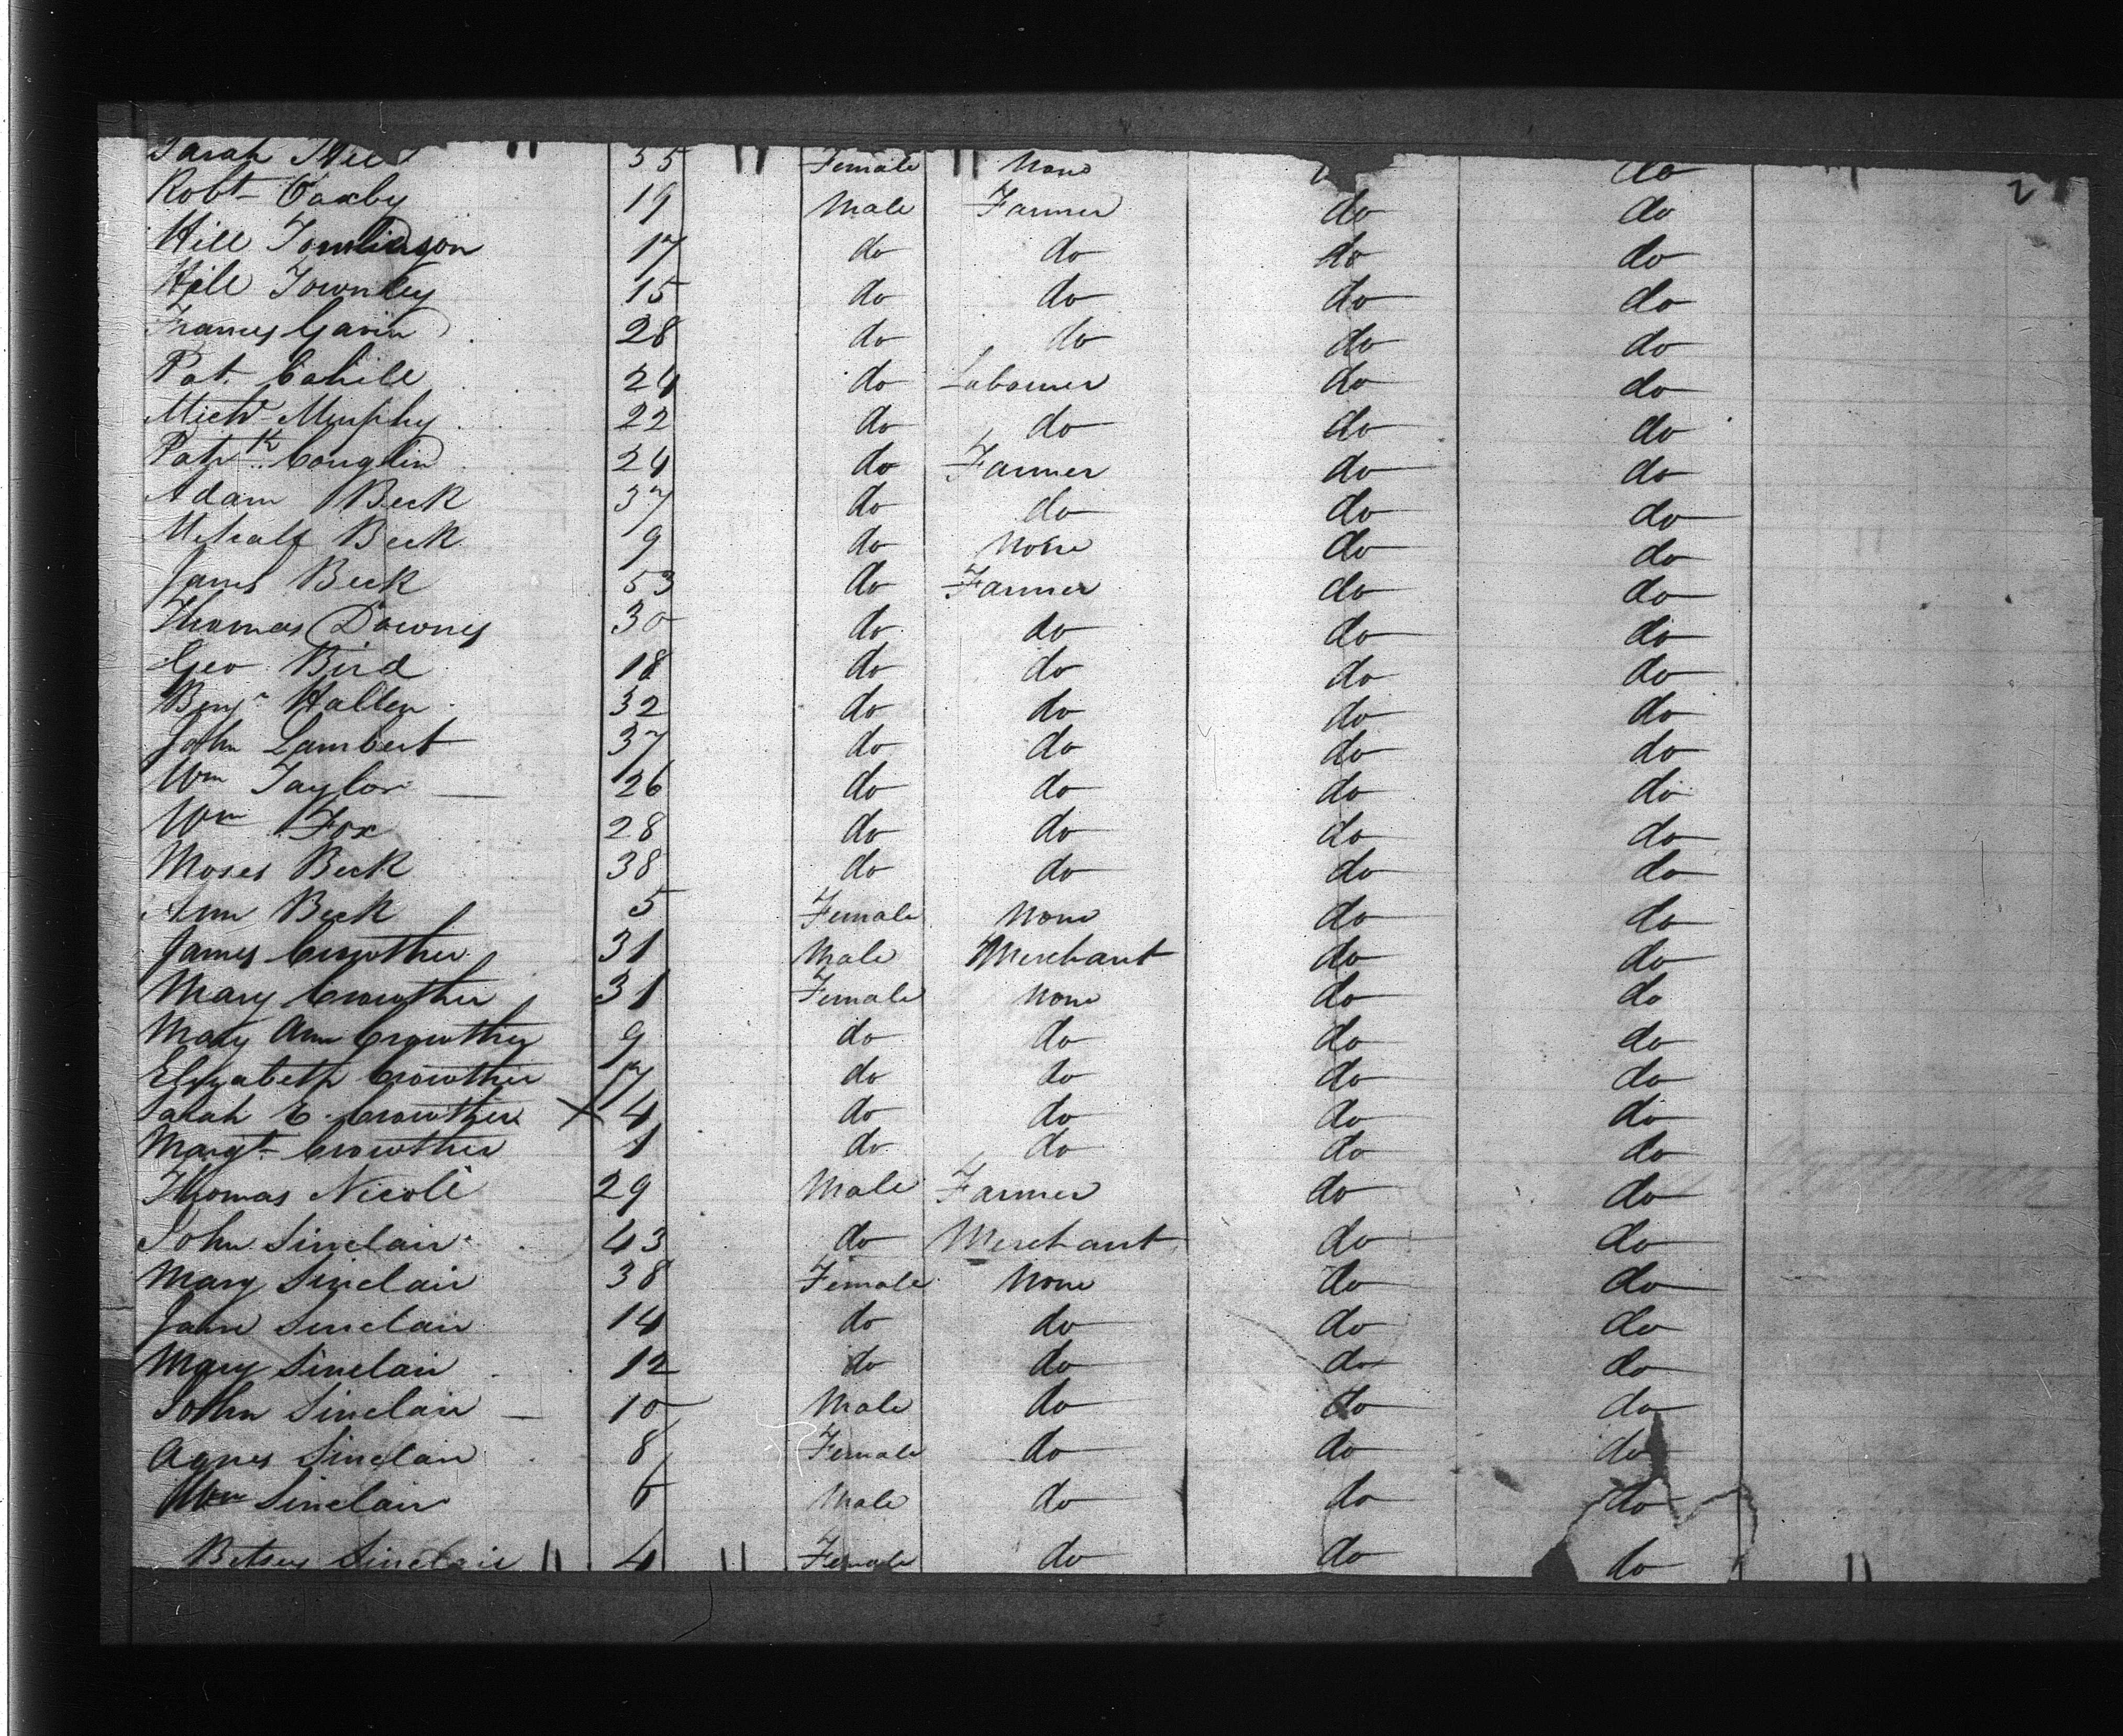 Sarah Hill 35 Female None do do
Robt Coxby 19 Male Farmer do do 2
Hill Tomlinson 17 do do do do
Hill Townley 15 do do do do
Frances Gavin 28 do do do do
Pat. Cahill 24 do Labourer do do
Michl Murphy 22 do do do do
Patrk Couglin 24 do Farmer do do
Adam Beck 37 do do do do
Metcalf Beck 9 do None do do
James Beck 53 do Farmer do do
Thomas Downey 30 do do do do
Geo Bird 18 do do do do
Benjn Hallen 32 do do do do
John Lambert 37 do do do do
Wm Taylor 26 do do do do
Wm Fox 28 do do do do
Moses Beck 38 do do do do
Ann Beck 5 Female None do do
James Crowther 31 Male Merchant do do
Mary Crowther 31 Female None do do
Mary Ann Crowther 9 do do do do
Elizabeth Crowther 7 do do do do
Sarah E. Crowther X 4 do do do do
Margt Crowther 1 do do do do
Thomas Nicoll 29 Male Farmer do do
John Sinclair 43 do Merchant do do
Mary Sinclair 38 Female None do do
Jane Sinclair 14 do do do do
Mary Sinclair 12 do do do do
John Sinclair 10 Male do do do
Agnes Sinclair 8 Female do do do
Wm Sinclair 6 Male do do do
Betsey Sinclair 4 Female do do do